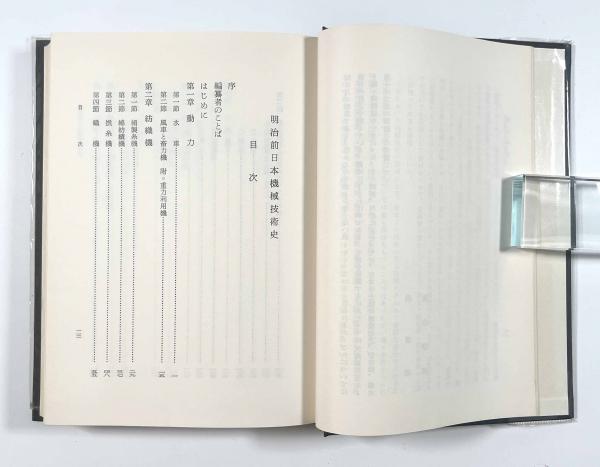 明治前日本機械技術史
目次
序
編纂者のことば
はじめに
第一章 動力
第一節 水車 一
第二節 風車と畜力機 附・重力利用機
第二章 紡織機
第一節 絹製糸機
第二節 綿紡績機
第三節 撚糸機
第四節 織機
目次